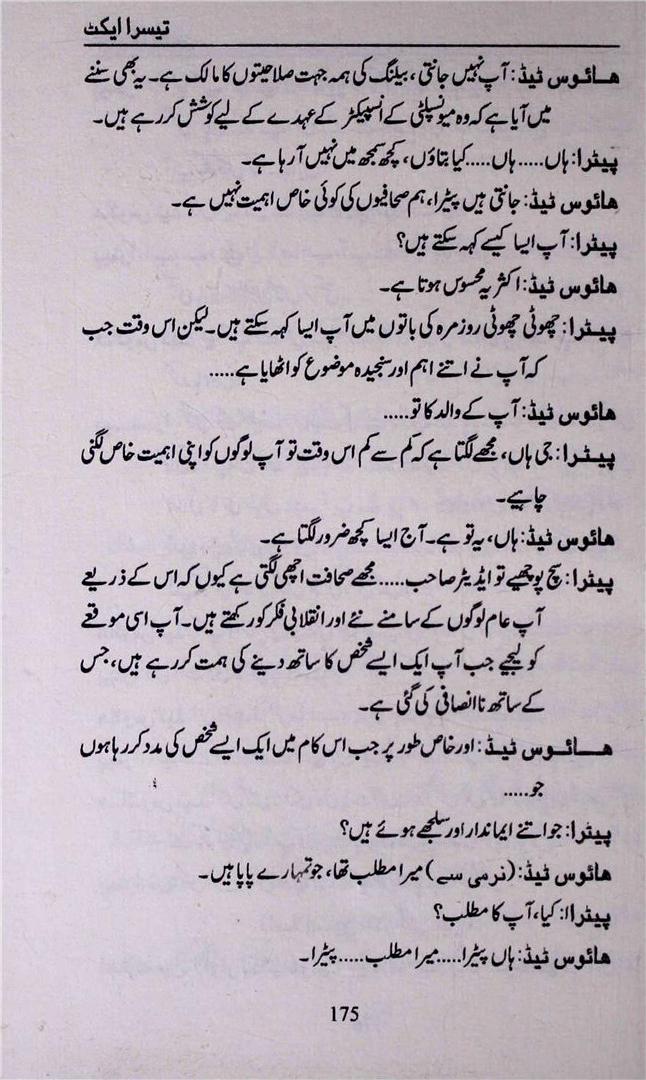 تیسرا ایکٹ
ھائوس ٹیڈ: آپ نہیں جانتی، بیلنگ کی ہمہ جہت صلاحیتوں کا مالک ہے۔ یہ بھی سننے
میں آیا ہے کہ وہ میونسپلٹی کے انسپکیٹر کے عہدے کے لیے کوشش کررہے ہیں۔
پیٹرا: ہاں..... ہاں..... کیا بتاؤں، کچھ سمجھ میں نہیں آرہا ہے۔
ھائوس ٹیڈ: جانتی ہیں پیٹرا، ہم صحافیوں کی کوئی خاص اہمیت نہیں ہے۔
پیٹرا: آپ ایسا کیسے کہہ سکتے ہیں؟
ھائوس ٹیڈ: اکثر یہ محسوس ہوتا ہے۔
پیٹرا: چھوٹی چھوٹی روزمرہ کی باتوں میں آپ ایسا کہہ سکتے ہیں۔ لیکن اس وقت جب
کہ آپ نے اتنے اہم اور سنجیدہ موضوع کو اٹھایا ہے.....
ھائوس ٹیڈ: آپ کے والد کا تو.....
پیٹرا: جی ہاں، مجھے لگتا ہے کہ کم سے کم اس وقت تو آپ لوگوں کو اپنی اہمیت خاص لگنی
چاہیے۔
ھائوس ٹیڈ: ہاں، یہ تو ہے۔ آج ایسا کچھ ضرور لگتا ہے۔
پیٹرا: سچ پوچھیے تو ایڈیٹر صاحب..... مجھے صحافت اچھی لگتی ہے کیوں کہ اس کے ذریعے
آپ عام لوگوں کے سامنے نئے اور انقلابی فکر کو رکھتے ہیں۔ آپ اسی موقعے
کو لیجیے جب آپ ایک ایسے شخص کا ساتھ دینے کی ہمت کررہے ہیں، جس
کے ساتھ ناانصافی کی گئی ہے۔
ھائوس ٹیڈ: اور خاص طور پر جب اس کام میں ایک ایسے شخص کی مدد کررہا ہوں
جو.....
پیٹرا: جو اتنے ایماندار اور سلجھے ہوئے ہیں؟
ھائوس ٹیڈ: (نرمی سے) میرا مطلب تھا، جو تمہارے پاپا ہیں۔
پیٹرا: کیا، آپ کا مطلب؟
ھائوس ٹیڈ: ہاں پیٹرا..... میرا مطلب..... پیٹرا۔
175